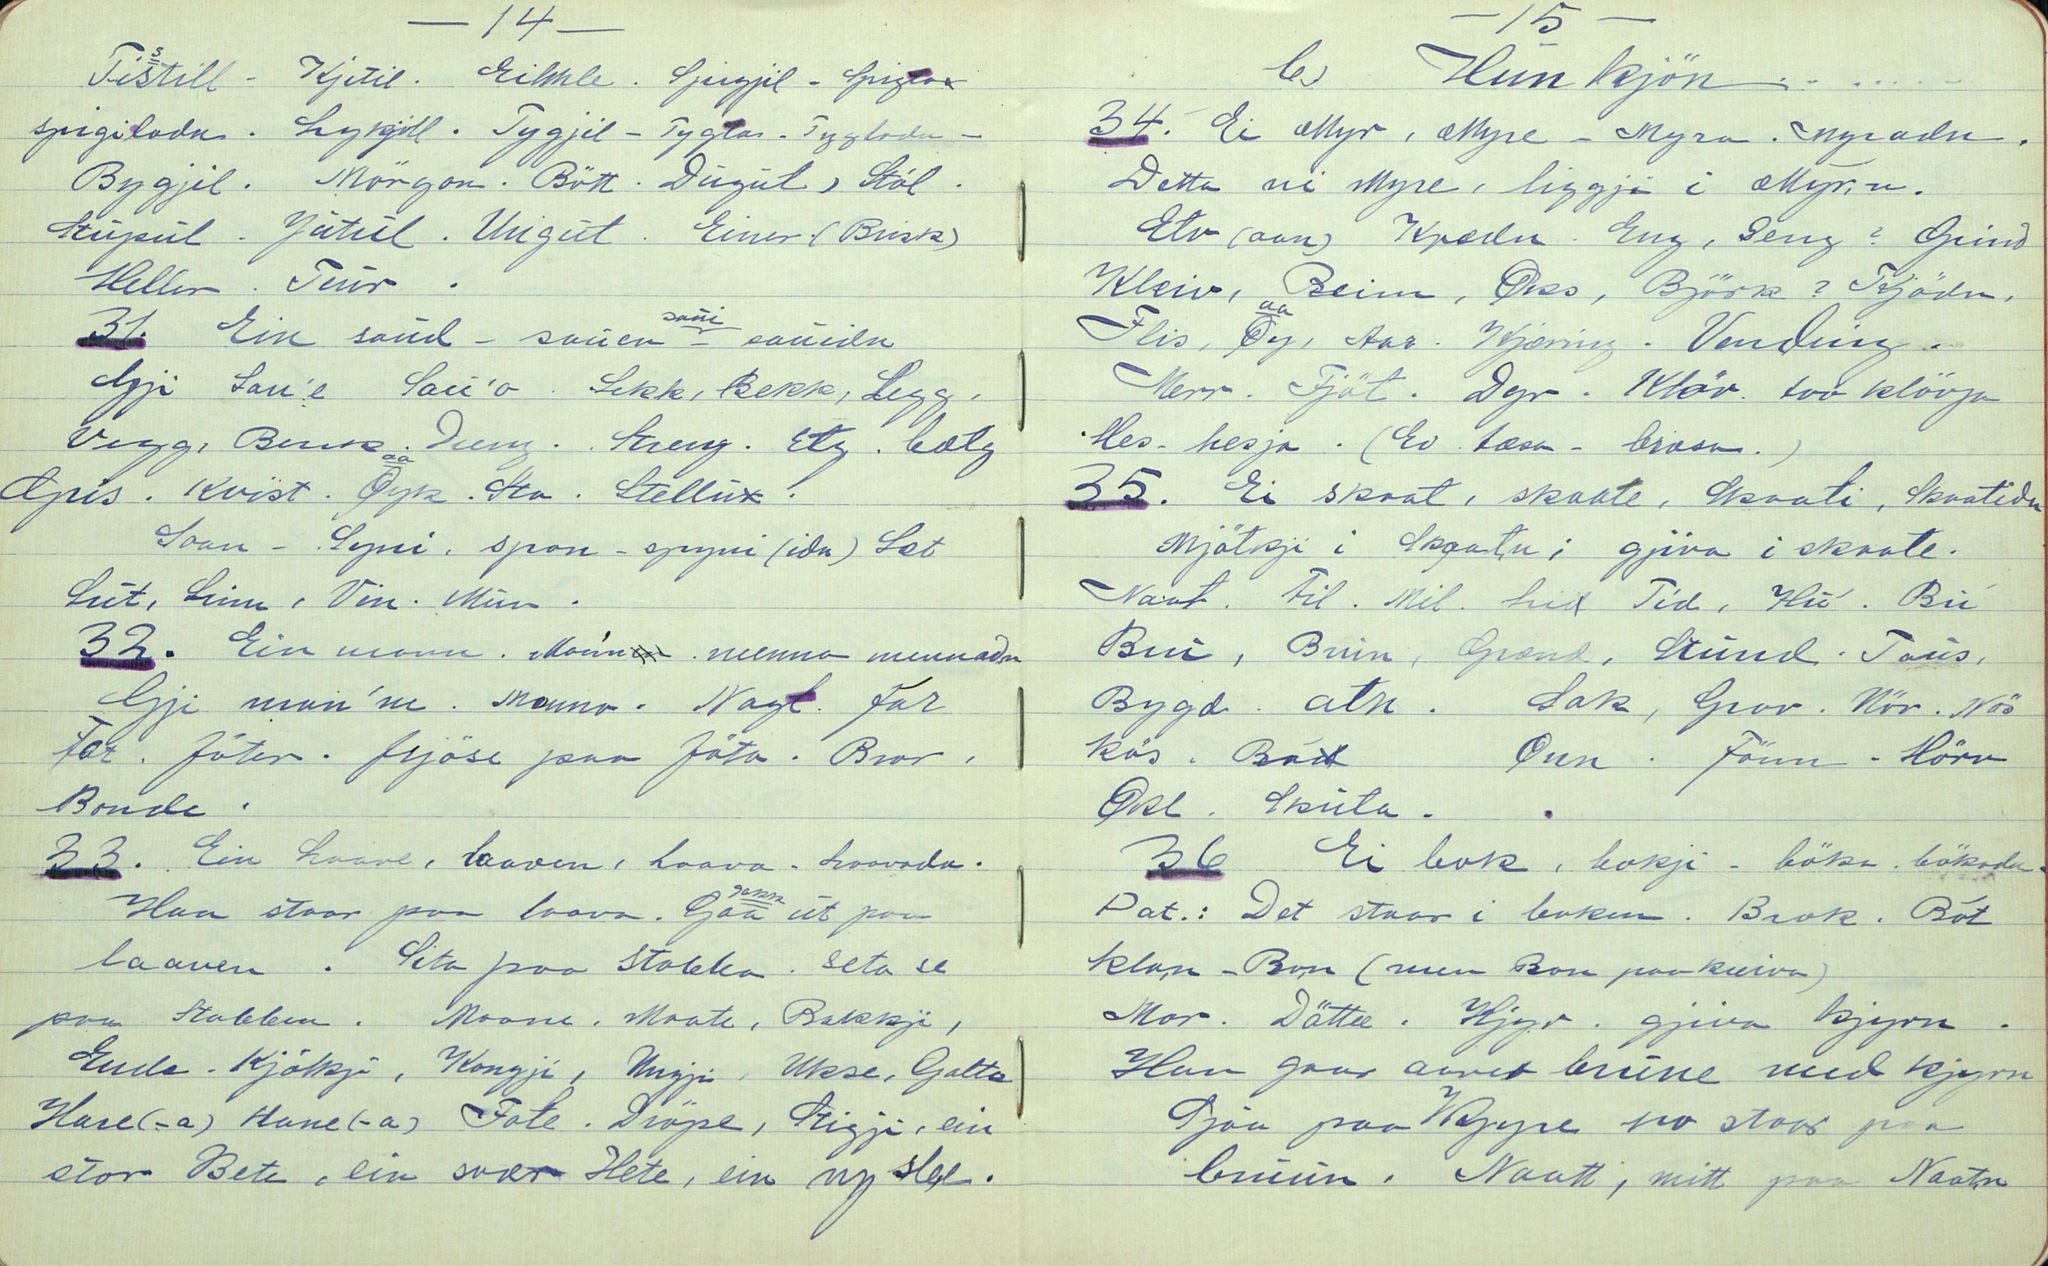 — 14 —
Tistill - Kjetil. Eikkle. Spigjil - Spiglar
spigiladn. Lykjill. Tygjil - Tyglar - Tygladn -
Bygjil. Mörgon. Bött. Dugul, Stól.
Stupul. Jútul. Ungút. Einer (Brisk)
Heller. Teur.
31. Ein saud - sauen - saui sauidn
Gji Sau'e Sau'o. Sekk, Bekk, Legg,
Vegg, Benk. Dreng. Streng. Elg. bælg
Gris. Kvist. Øyk. aa Sta. Stellux.
Soon - Syni, spon - spyni (idn) Let
Lut, Linn, Vin. Mun.
32. Ein mann. Mann menna mennadn
Gji man'ne. Manno. Nagl. Far
Fot. föter. frjöse paa föto. Bror,
Bonde.
33. Ein laave, laaven, laava - laavadn.
Han staar paa laava. Gaa gakk út paa
laaven. Sita paa Stabba. seta se
paa Stabben. Maane. Maate, Bakkji,
Ende. Kjökji, Kongji, Ungji, Ukse, Galte
Hare (-a) Hane (-a) Fole. Dröpe, Stigji, ein
stor Bete, ein svær Hete, ein ny Slee.
— 15 —
b) Hunkjön
34. Ei Myr, Myre - Myra. Myradn.
Detta ni Myre, liggja i Myr,n.
Elv (aan) Kvædn. Eng, Seng? Grind
Kleiv, Reim, Øks, Björk? Tjödn,
Flis, Øy, aa Aar. Kjæring. Vending.
Merr. Fjöl. Dyr. Kløv. tvo klövja
Hes - hesja. (Ei tæsa - bræsa.)
35. Ei skaal, skaale, Skaali, Skaalidn
Mjölkji i Skaal,n; gjiva i skaale.
Naal. Fil. Mil. lid Tid, Hú. Bú
Bru, Brun, Grend, Stund. Taus,
Bygd. aln. Sak, Grav. Nör. Nös
kös. Ból Onn. Fönn - Hörn
Øksl. Skuta.
36 Ei bok, bokji - böka. bökadn.
Dat.: Det staar i boken. Brok. Bót
klo,n - Bo,n (men Bon paa kniva)
Mor. Dötter. Kjyr. gjiva kjyrn.
Han gaar aaver brune med kjyrn
Tjaa paa Kyre no staar paa
bruun. Naatt, mitt paa Naat,n